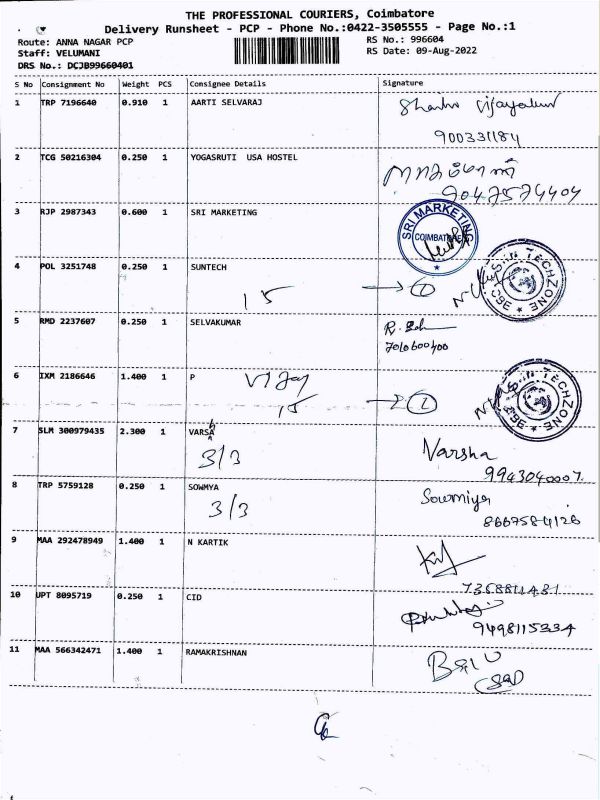 THE PROFESSIONAL COURIERS, Coimbatore
Delivery Runsheet - PCP - Phone No.:0422-3505555 - Page No.:1
Route: ANNA NAGAR PCP
RS No.: 996604
Staff: VELUMANI
RS Date: 09-Aug-2022
DRS No.: DCJB99660401
S No Consignment No Weight PCS Consignee Details Signature
1 TRP 7196640 0.910 1 AARTI SELVARAJ
900331184
2 TCG 50216304 0.250 1 YOGASRUTI USA HOSTEL
9047574404
3 RJP 2987343 0.600 1 SRI MARKETING
SRI MARKETING
COIMBATORE
4 POL 3251748 0.250 1 SUNTECH
15 → 1
TECHZONE
5 RMD 2237607 0.250 1 SELVAKUMAR
7010600400
6 IXM 2186646 1.400 1 P Vijay
15
TECHZONE
7 SLM 300979435 2.300 1 VARSA h Varsha
3/3 9943040007.
8 TRP 5759128 0.250 1 SOWMYA Sowmiya
3/3 8667584126
9 MAA 292478949 1.400 1 N KARTIK
7358811431
10 UPT 8095719 0.250 1 CID
9498115334
11 MAA 566342471 1.400 1 RAMAKRISHNAN